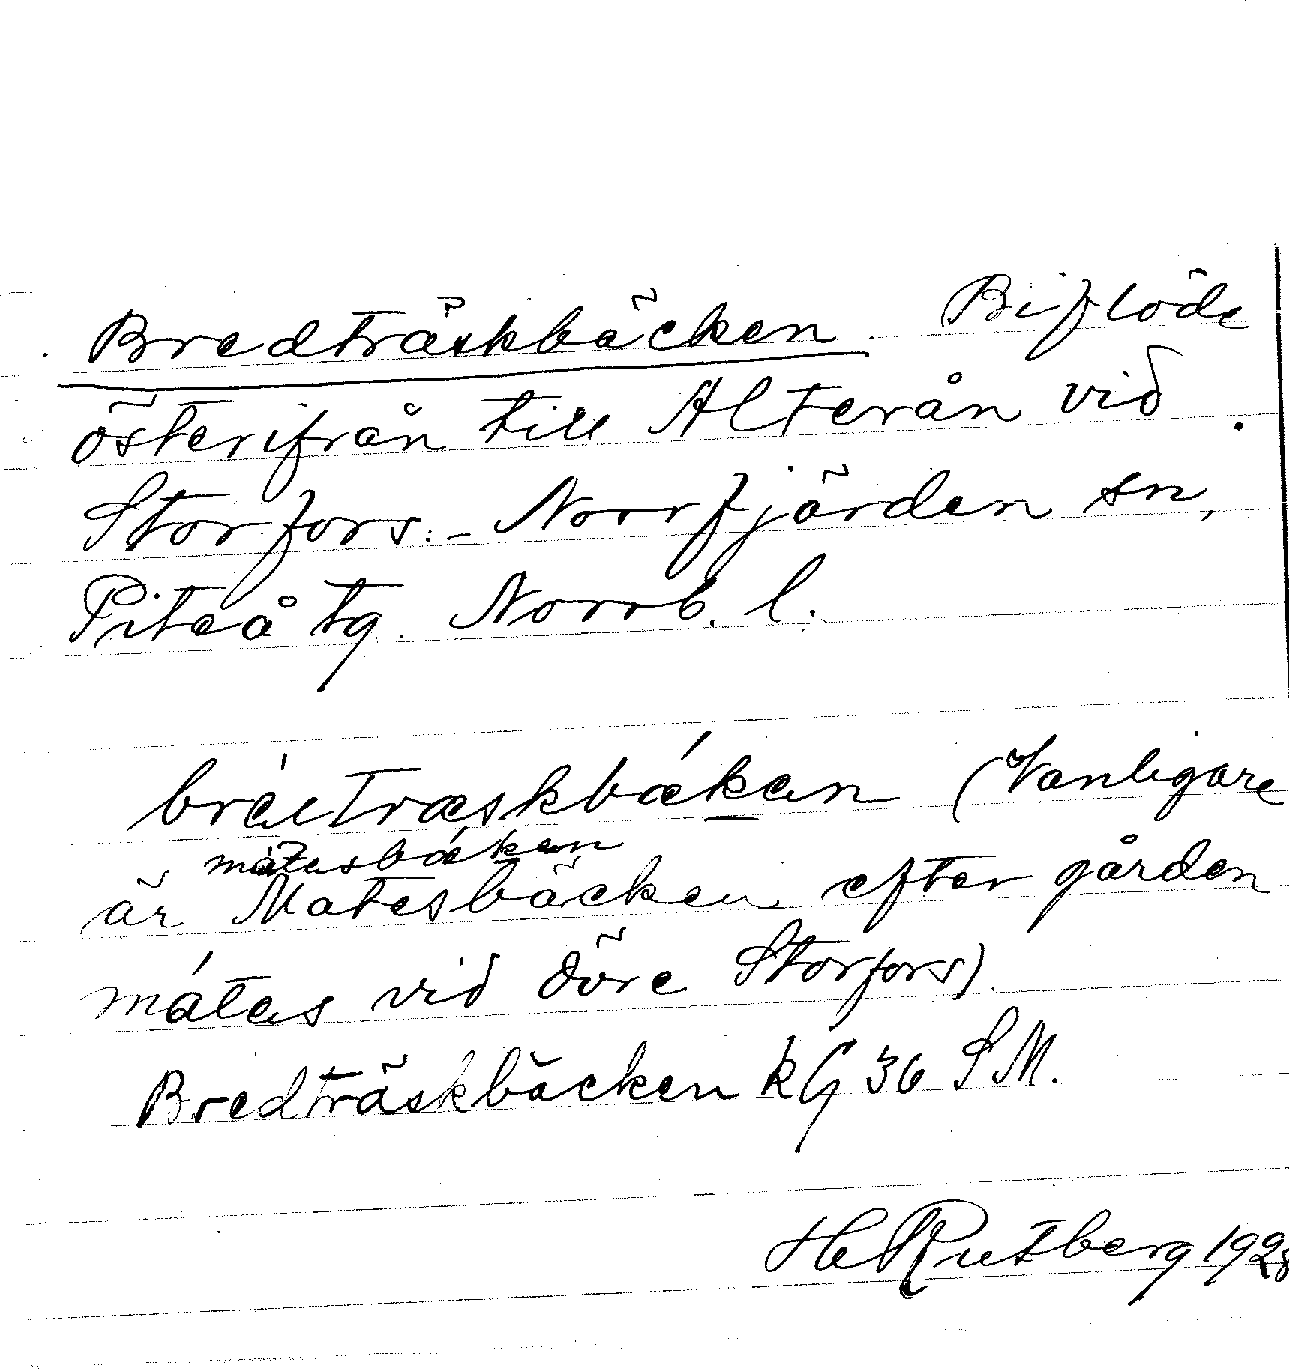 Bredträskbäcken. Biflöde
österifrån till Alterån vid
Storfors. - Norrfjärden sn,
Piteå tg. Norrb. l.
bräitræskbǽkan (Vanligare
mátasbǽkan
är Matesbäcken efter gården
mátas vid övre Storfors).
Bredträskbäcken kG 36 SM.
H Rutberg 1928